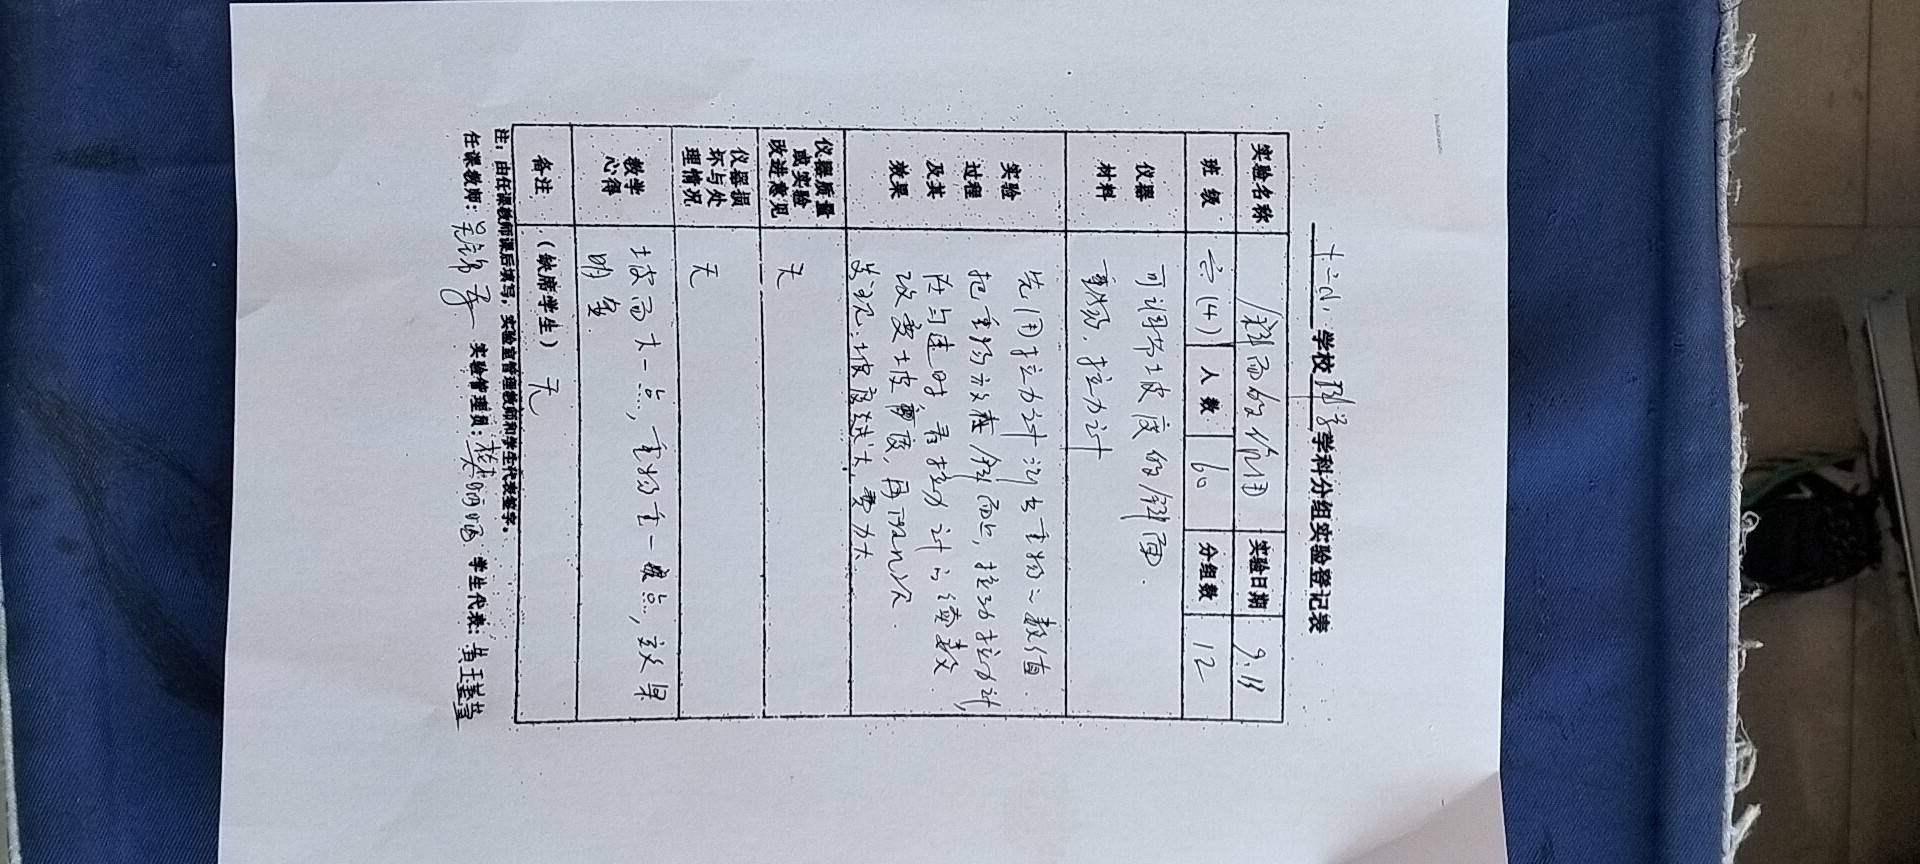 十二小学校科学学科分组实验登记表
实验名称 斜面的作用 实验日期 9.18
班级 六(4) 人数 60 分组数 12
仪器材料 可调节坡度的斜面.
重物,拉力计
实验过程及其效果 先用拉力计测出重物的数值.
把重物放在斜面上,拉动拉力计,
在匀速时,看拉力计的读数.
改变坡度,再测几次.
发现:坡度越大,费力大.
仪器质量或实验改进意见 无
仪器损坏与处理情况 无
教学心得 坡面大一点,重物重一点,效果
明显.
备注 (缺席学生) 无
注:由任课教师课后填写,实验室管理教师和学生代表签字。
任课教师: 实验管理员: 学生代表: